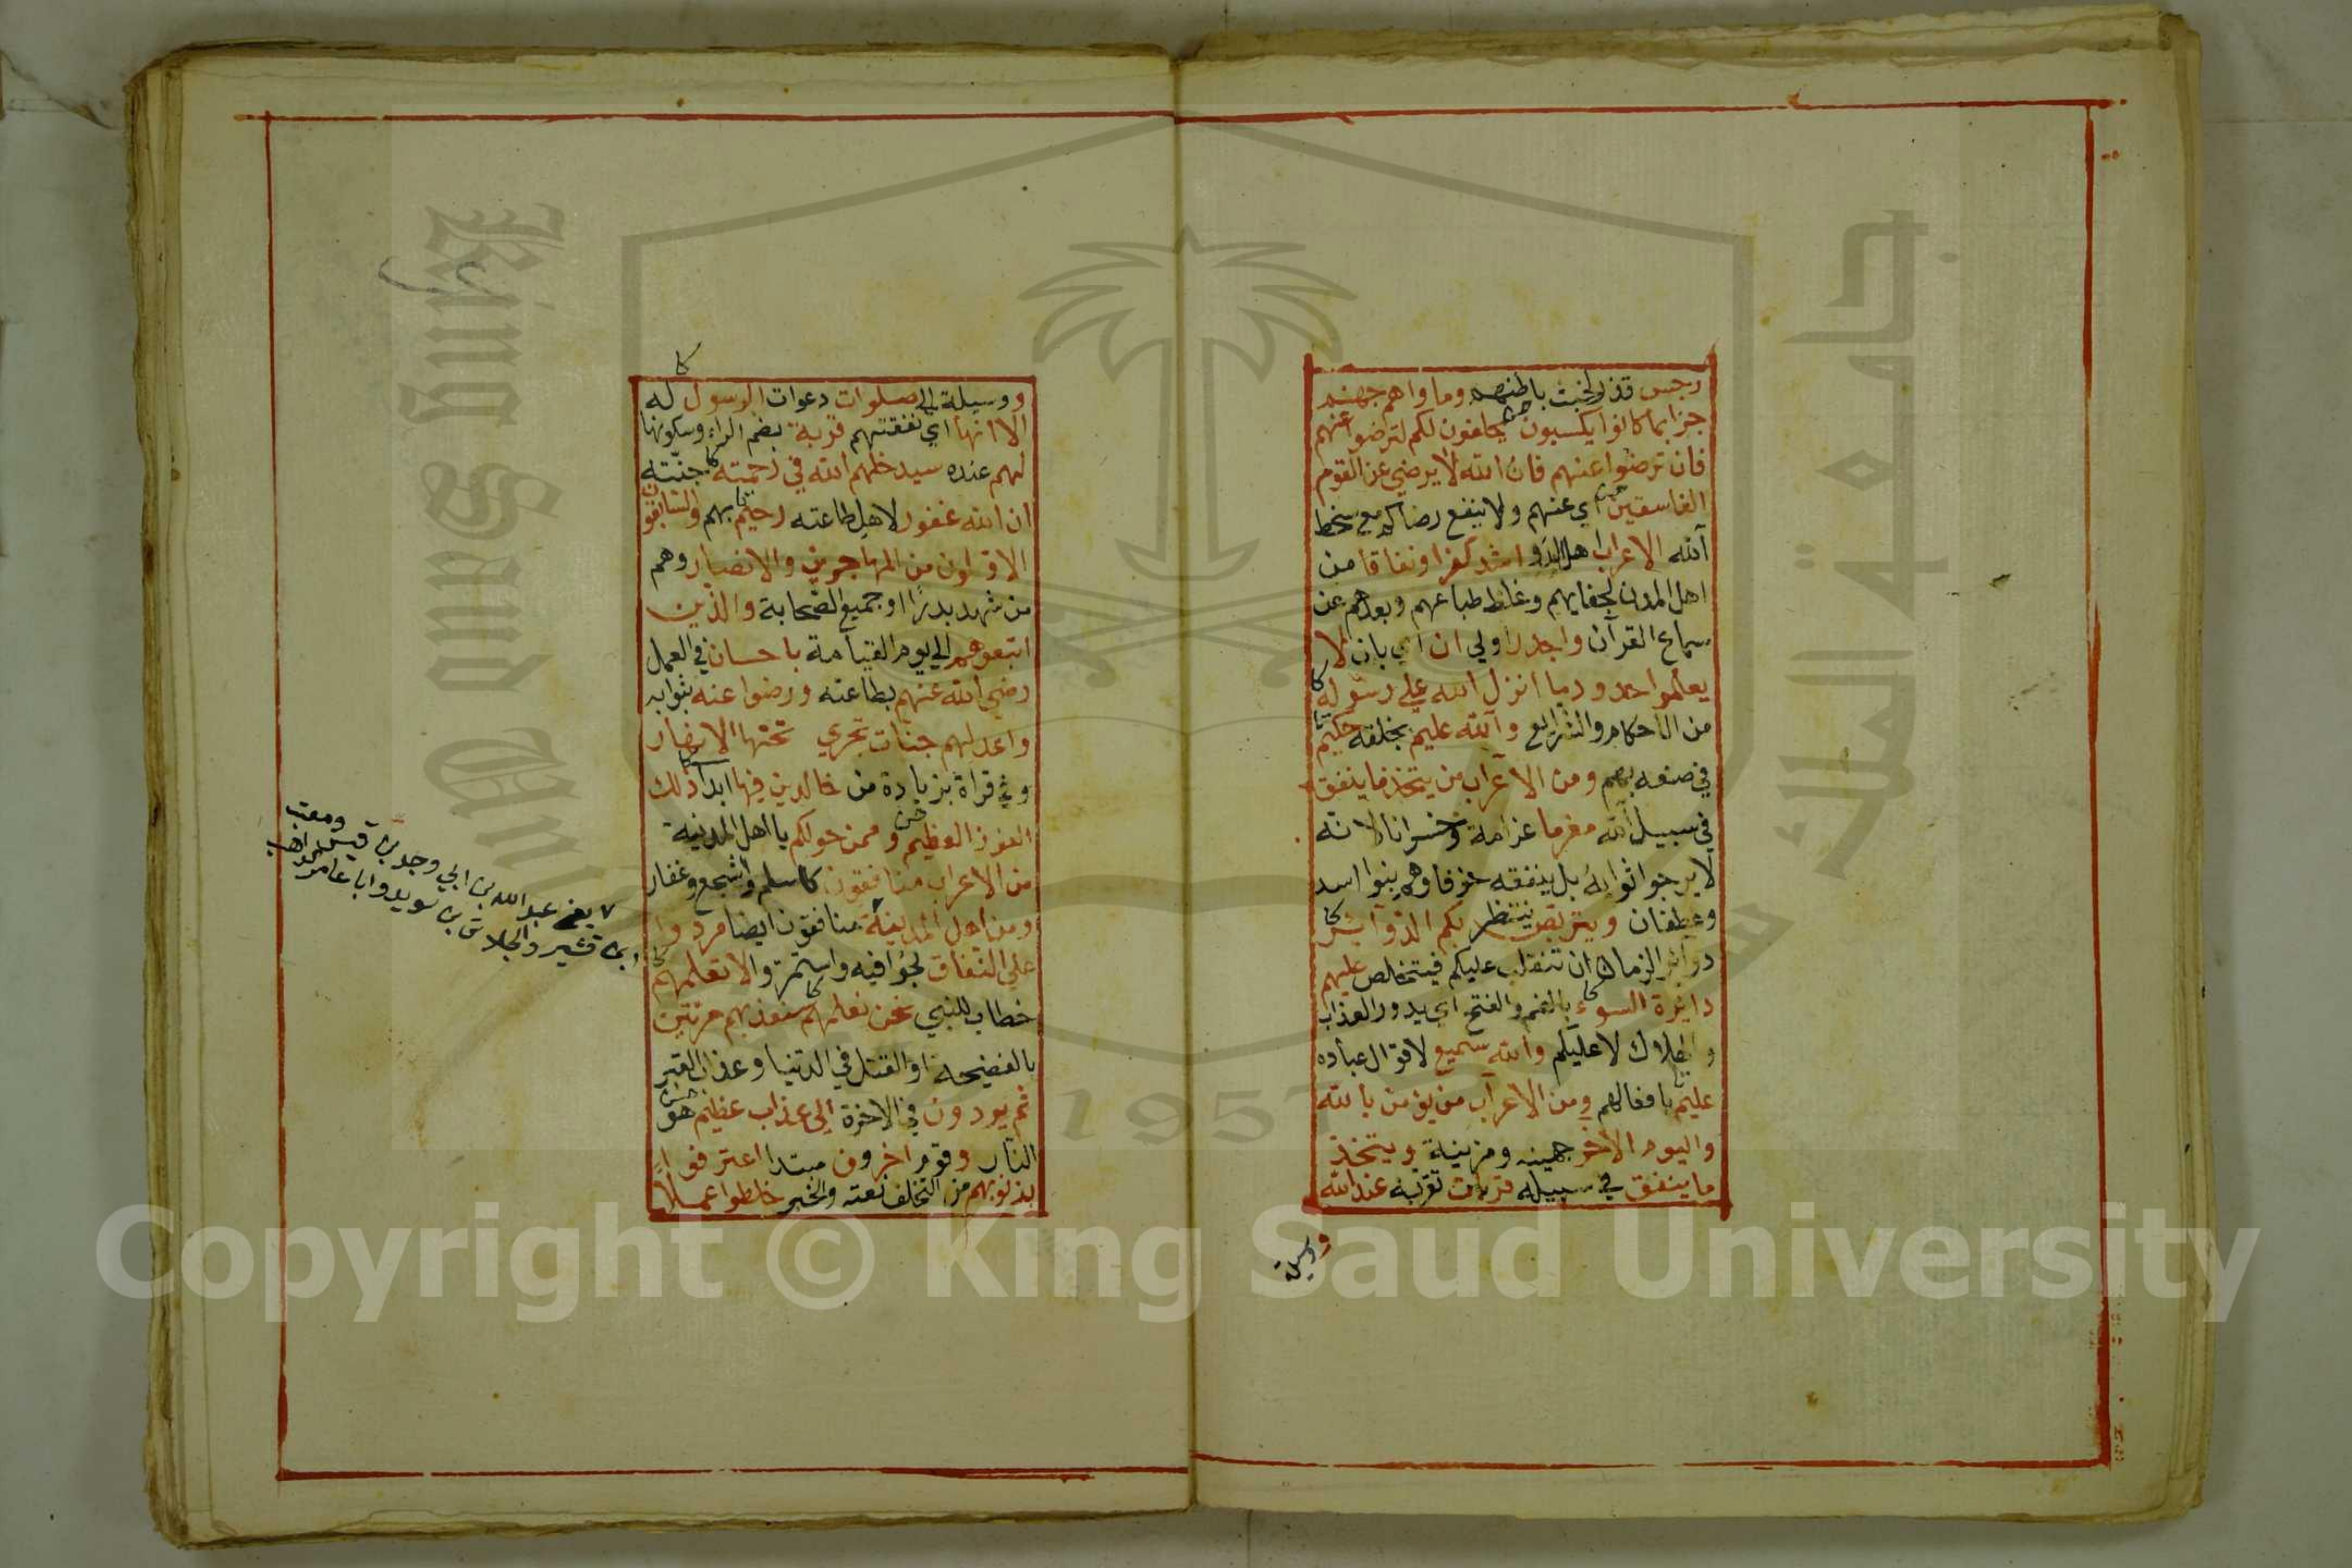 رجس قذر لخبث باطنهم وماواهم جهنم
جزا بما كانوا يكسبون يحلفون لكم لترضوا عنهم
فان ترضوا عنهم فان الله لا يرضي عن القوم
الفاسقين اي عنهم ولا ينفع رضاكم مع سخط
الله الاعراب اهل البدو اشد كفرا ونفاقا من
اهل المدن لجفايهم وغلظ طباعهم وبعدهم عن
سماع القرآن واجدر اولي ان اي بان لا
يعلموا حدود ما انزل الله علي رسوله
من الاحكام والشرايع والله عليم بخلقه حكيم
في صنعه بهم ومن الاعراب من يتخذ ما ينفق
في سبيل الله مغرما غرامة وخسرانا لانه
لا يرجوا ثوابه بل ينفقه خوفا وهم بنوا اسد
وغطفان ويتربص ينتظر بكم الدوآئر
دوآئر الزمان ان تنقلب عليكم فيتخلص عليهم
دايرة السوء بالضم والفتح اي يدور العذاب
والهلاك لا عليكم والله سميع لاقوال عباده
عليم بافعالهم ومن الاعراب من يؤمن بالله
واليوم الآخر جهينه ومزينة ويتخذ
ما ينفق في سبيله قربات تقربه عند الله
ووسيلة
ووسيلة الي صلوات دعوات الرسول له
الا انها اي نفقتهم قربة بضم الراء وسكونها
لهم عنده سيدخلهم الله في رحمته جنته
ان الله غفور لاهل طاعته رحيم بهم والسابقون
الاولون من المهاجرين والانصار وهم
من شهد بدرًا او جميع الصحابة والذين
اتبعوهم الي يوم القيامة باحسان في العمل
رضي الله عنهم بطاعته ورضوا عنه بثوابه
واعد لهم جنات تجري تحتها الانهار
وفي قراة بزيادة من خالدين فيها ابدا ذلك
الفوز العظيم وممن حولكم يا اهل المدينة
من الاعراب منافقون كاسلم واشجع وغفار
ومن اهل المدينة منافقون ايضا مردوا
علي النفاق لجوا فيه واستمروا لا تعلمهم
خطاب للنبي نحن نعلمهم سنعذبهم مرتين
بالفضيحة او القتل في الدنيا وعذاب القبر
ثم يردون في الاخرة الي عذاب عظيم هو
النار وقوم اخرون مبتدا اعترفوا
بذنوبهم من التخلف نعته والخبر خلطوا عملا
يعني عبد الله بن ابي وجد بن قيس ومعتب
ابن قشير والجلاس بن سويد وابا عامر الراهب
Copyright © King Saud University
King Saud University
جامعة الملك سعود
1957